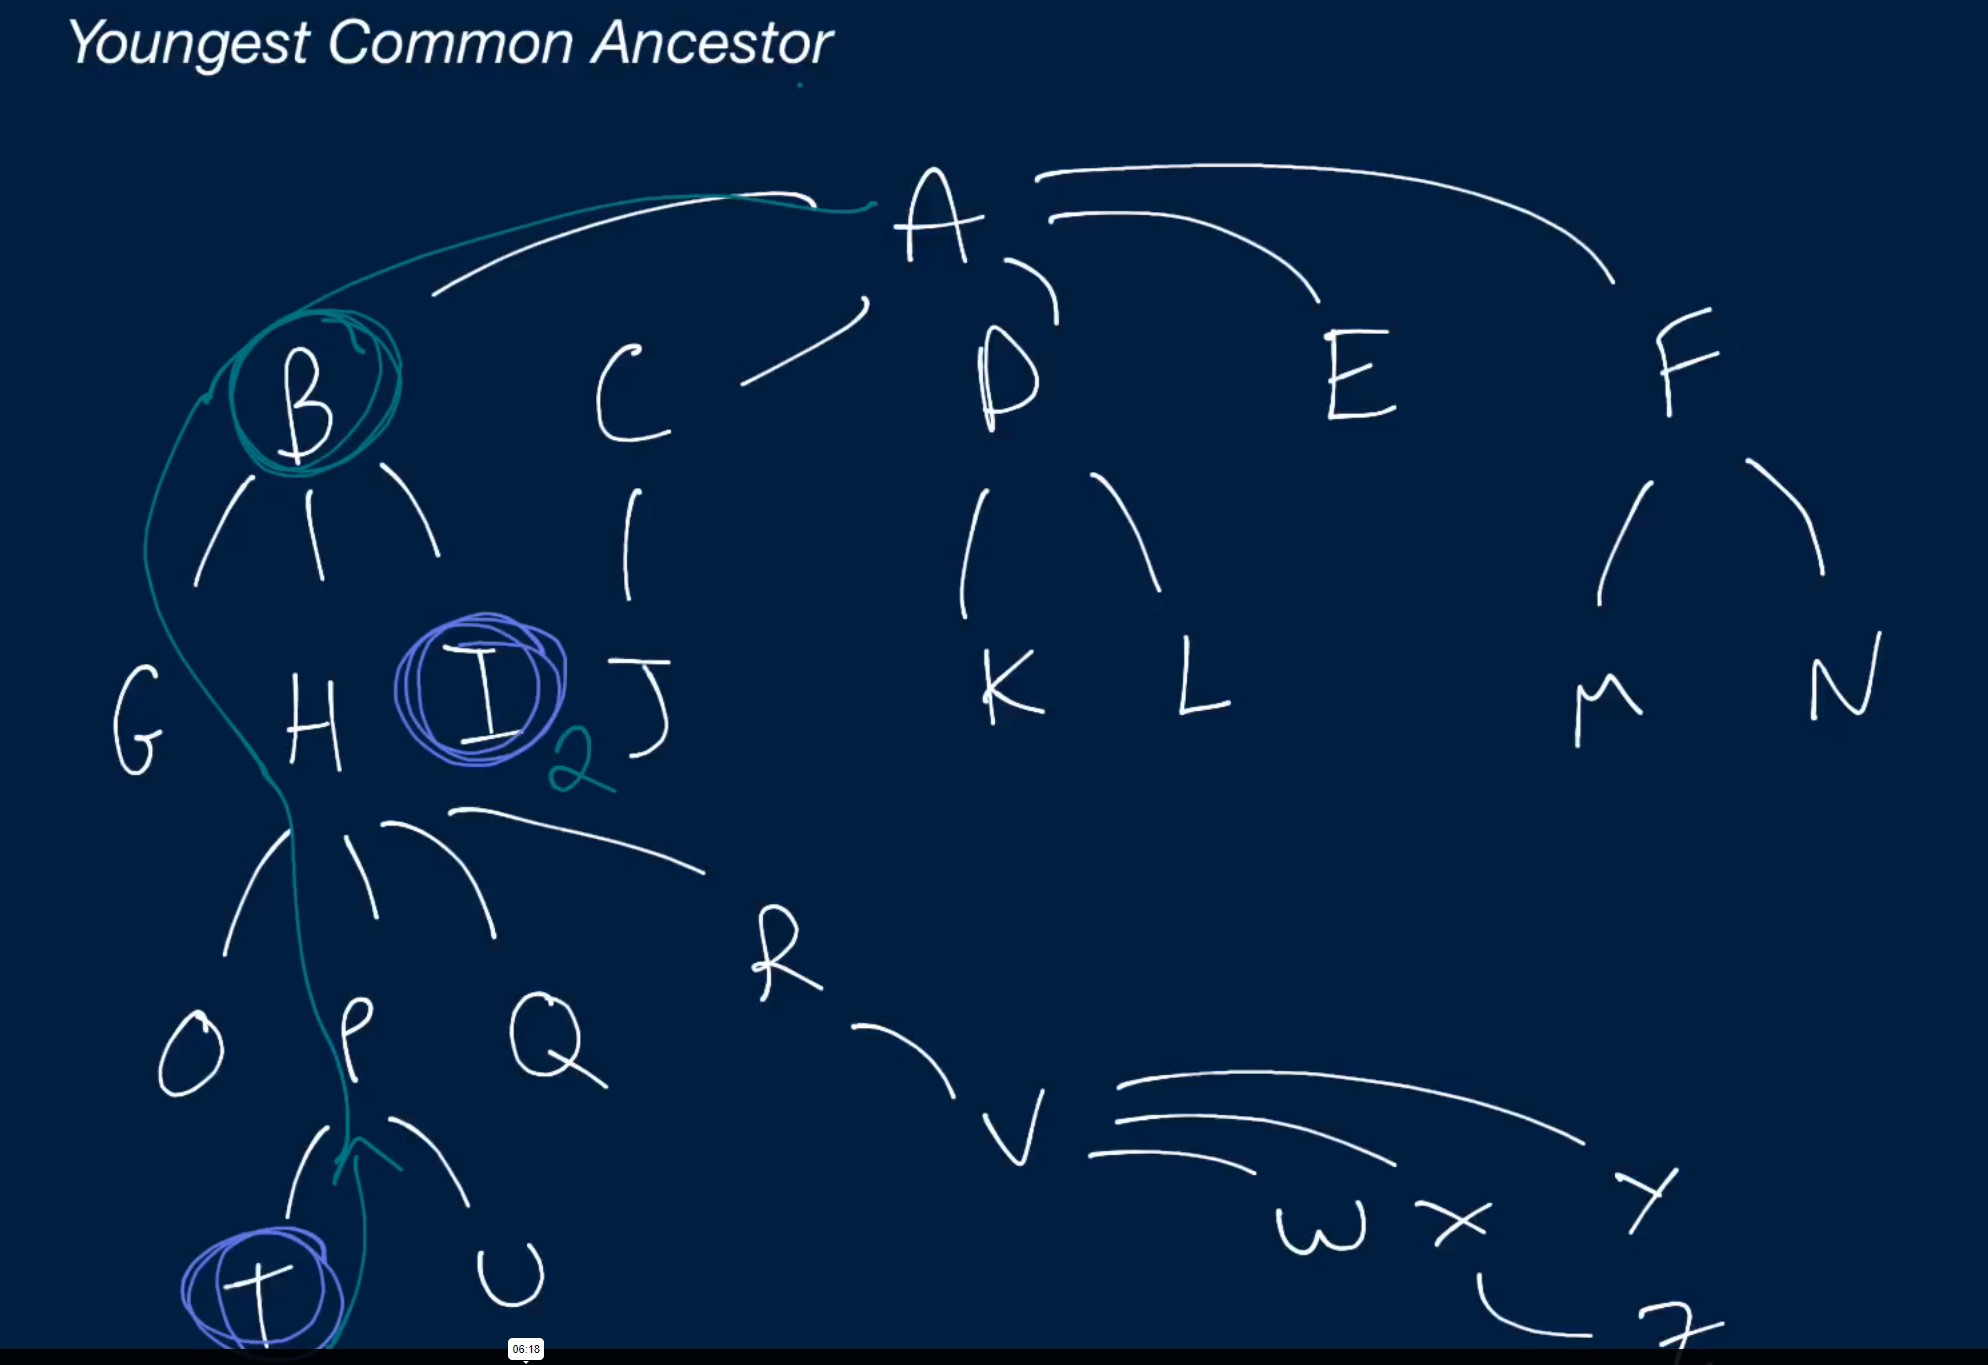 Youngest Common Ancestor
A
B C D E F
G H I J K L M N
2
R
O P Q
V
W X Y
T U
Z
06:18